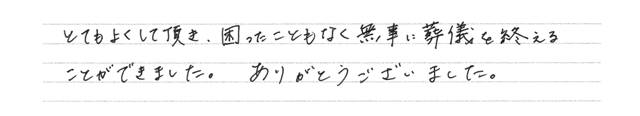 とてもよくして頂き、困ったこともなく無事に葬儀を終える
ことができました。 ありがとうございました。